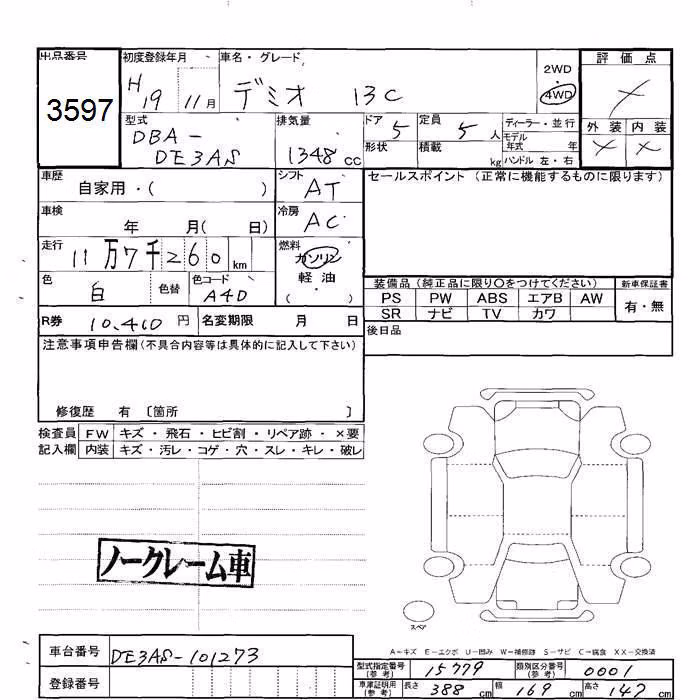 出品番号 初度登録年月 車名・グレード 2WD 評価点
3597 H19 11月 デミオ 13C 4WD
型式 排気量 ドア 定員 ディーラー・並行 外装 内装
DBA- 5 5人 モデル年式 年
DE3AS 1348cc 形状 積載 kg ハンドル 左・右
車歴 シフト セールスポイント (正常に機能するものに限ります)
自家用・( ) AT
車検 冷房
年 月( 日) AC
走行 燃料
11万7千260km ガソリン
軽油
( ・ )
色 白 色替 色コード A4D
装備品 (純正品に限り〇をつけてください) 新車保証書
PS PW ABS エアB AW 有・無
SR ナビ TV カワ
R券 10,410円 名変期限 月 日
後日品
注意事項申告欄(不具合内容等は具体的に記入して下さい)
修復歴 有 〔箇所 〕
検査員 FW キズ・飛石・ヒビ割・リペア跡・×要
記入欄 内装 キズ・汚レ・コゲ・穴・スレ・キレ・破レ
ノークレーム車
スペア
A-キズ E-エクボ U-凹み W-補修跡 S-サビ C-腐食 XX-交換済
車台番号 DE3AS-101273
登録番号
型式指定番号(参考) 15779 類別区分番号(参考) 0001
車庫証明用(参考) 長さ 388cm 幅 169cm 高さ cm